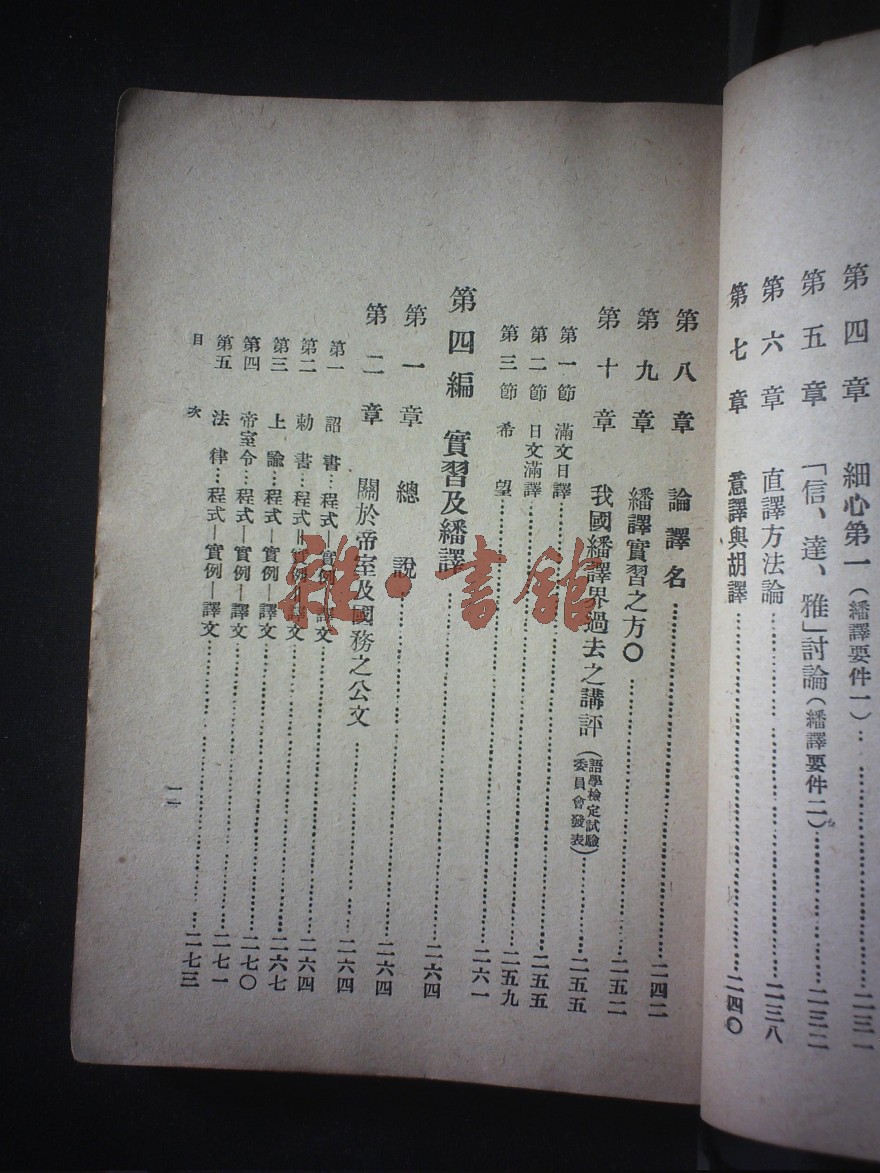 第四章 細心第一(繙譯要件一)……二三一
第五章 「信、達、雅」討論(繙譯要件二)……二三二
第六章 直譯方法論……二三八
第七章 意譯與胡譯……二四〇
第八章 論譯名……二四二
第九章 繙譯實習之方〇……二五二
第十章 我國繙譯界過去之講評(語學檢定試驗委員會發表)……二五五
第一節 滿文日譯……二五五
第二節 日文滿譯……二五九
第三節 希望……二六一
第四編 實習及繙譯……二六四
第一章 總說……二六四
第二章 關於帝室及國務之公文……二六四
第一 詔書…程式—實例—譯文……二六四
第二 勅書…程式—實例—譯文……二六七
第三 上諭…程式—實例—譯文……二七〇
第四 帝室令…程式—實例—譯文……二七一
第五 法律…程式—實例—譯文……二七三
目次
雜·書館